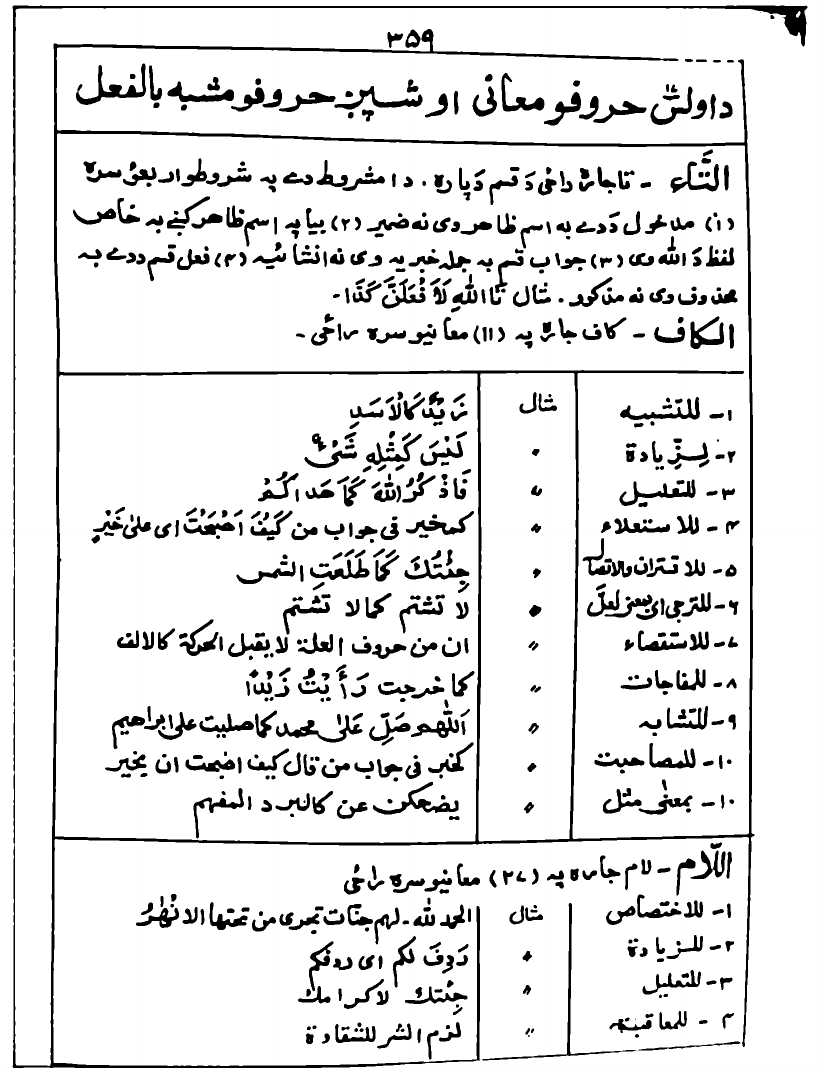 ۳۵۹
داولس حروفو معانی او شپږ حروفو مشبه بالفعل
التَّاء - تا جاره راځی دَ قسم دَپاره. دا مشروط دے په شروطو اربعؤ سره
(۱) مدخول دَ دے به اسم ظاهر وی نه ضمیر (۲) بیا په اسم ظاهر کښے به خاص
لفظ دَ الله وی (۳) جواب قسم به جمله خبریه وی نه انشائیه (۴) فعل قسم د دے به
محذوف وی نه مذکور. مثال تَا اللهِ لَاَ فْعَلَنَّ كَذَا-
الکاف - کاف جاره په (۱۱) معانیو سره راځی-
۱- للتشبیه مثال زَیْدٌ کَالْاَسَدِ
۲- لِلزِّیادة " لَیْسَ کَمِثْلِهِ شَیْءٌ
۳- للتعلیل " فَاذْکُرُ اللهَ کَمَا هَداکُمْ
۴- للاستعلاء " کمخیر فی جواب من کَیْفَ اَصْبَحْتَ ای علیٰ خَیْرٍ
۵- للاقتران والاتصال " جِئْتُكَ كَمَا طَلَعَتِ الشمس
۶- للترجی ای بمعنی لعلَّ " لا تشتم کما لا تشتم
۷- للاستقصاء " ان من حروف العلة لا یقبل الحرکة کالالف
۸- للمفاجات " کما خرجت رَأَیْتُ زَیْدًا
۹- للتشابه " اَللّٰهم صَلِّ عَلیٰ محمد کما صلیت علی ابراهیم
۱۰- للمصاحبت " کخبر فی جواب من قال کیف اصبحت ان یخیر
۱۰- بمعنٰی مثل " یضحکن عن کالبرد المفهم
اللّام - لام جاره په (۲۷) معانیو سره راځی
۱- للاختصاص مثال الحمد لله - لهم جنات تجری من تحتها الانهٰرُ
۲- للزیادة " رَدِفَ لکم ای ردفکم
۳- للتعلیل " جِئتك لاکرامك
۴- للمعاقبة " لزم الشر للشقادة